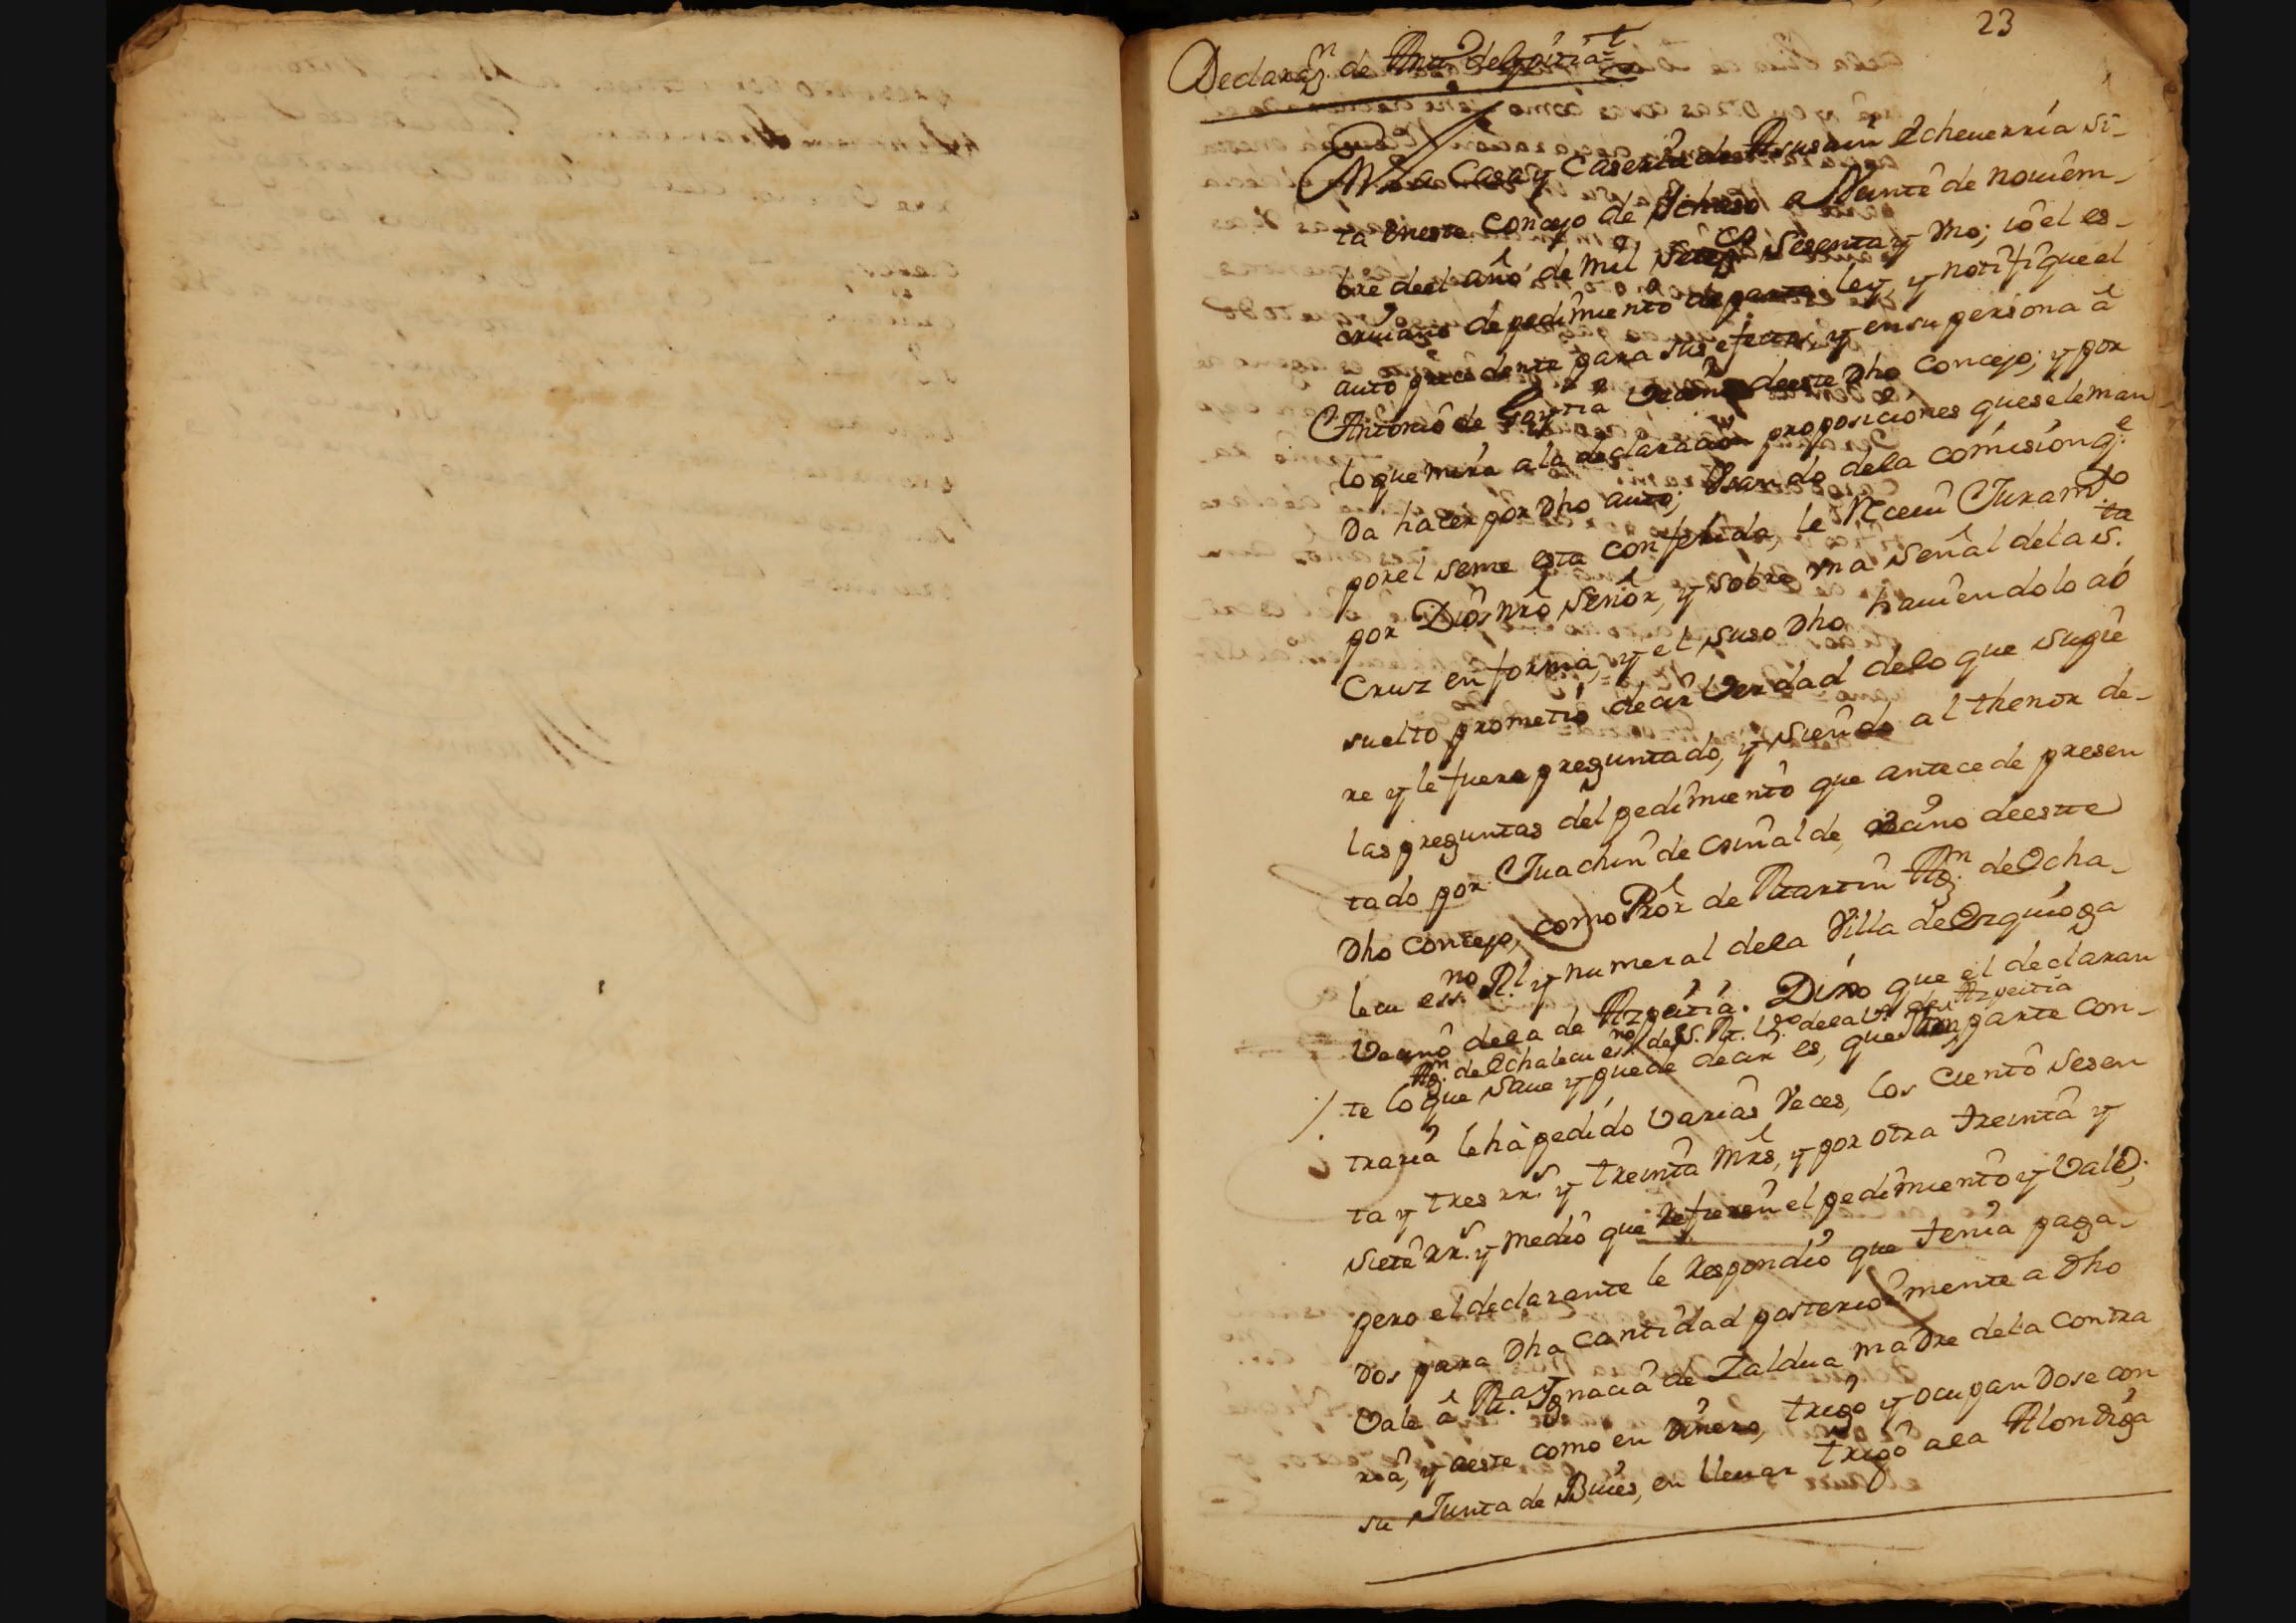 23
Declaraz.n de Antt.o de Goitia
En la Casa y Caseria de Asusain Echeuerria si-
ta en este Concejo de a Veinte de nouiem-
bre de el año de mil Setez.s Sesenta y vno; io el es-
criuano de pedimiento de parte ley, y notifique el
auto precedente para sus efectos, y en su persona a
Antonio de Goytia Vecino de este Dho Concejo; y por
lo que mira a la declaracion proposiciones que se le man
da hacer por Dho auto; Vsando de la comision q.e
por el se me esta conferida, le Receui Juram.to
por Dios nrō Señor, y sobre vna Señal de la S.ta
Cruz en forma, y el suso Dho hauiendolo ab
suelto prometio decir Verdad de lo que supie
re y le fuere preguntado, y siendo al thenor de-
las preguntas del pedimiento que antecede presen
tado por Juachin de Osinalde, vecino de este
Dho Concejo, como Prōr de Martin Ag.n de Ocha-
lecu ess.no R.l y numeral de la Villa de Ezquioga
Vecino de la de Azpeitia. Dixo que el declaran
Ag.n de Ochalecu ess.no de S. M. V.o de la V.a de Azpeitia
te lo que saue y puede decir es, que parte con-
traria le hà pedido varias Veces, los Ciento Sesen
ta y tres rr.s y treinta mrs, y por otra treinta y
siete rr.s y medio que refieren el pedimiento y Vale;
pero el declarante le Respondio que tenia paga-
dos para Dha Cantidad posteriormente a Dho
Vale â M.a Ygnacia de Zaldua madre de la Contra
ria, y a este como en Dinero, trigo y ocupandose con
su Junta de Bueies, en lleuar trigo a la Alondiga